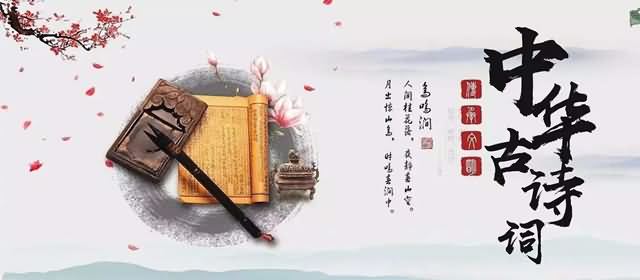 中华古诗词
傳承文明
鸟鸣涧
人闲桂花落,夜静春山空。
月出惊山鸟,时鸣春涧中。